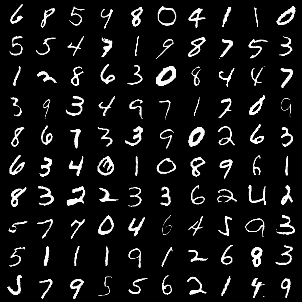 6 8 5 4 8 0 4 1 1 0
5 5 4 7 1 9 8 7 5 3
1 2 8 6 3 0 8 4 4 7
3 9 3 4 9 7 1 7 0 9
8 6 7 3 3 9 0 2 6 3
6 3 4 0 1 0 8 9 6 1
8 3 2 2 3 3 6 2 4 2
5 7 7 0 4 6 4 5 9 3
5 1 1 1 9 1 2 6 8 3
5 7 9 5 5 6 2 1 4 9